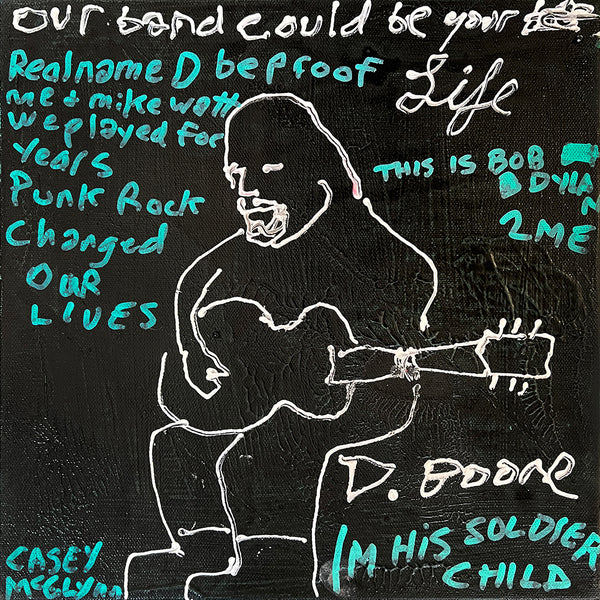 OUR band could be your
Life
Real name D be proof
me + mike watt
we played for
years
Punk Rock
Changed
OUR
LIVES
THIS IS BOB
DYLAN
2 ME
D. BOONE
I'M HIS SOLDIER
CHILD
CASEY
McGLYNN